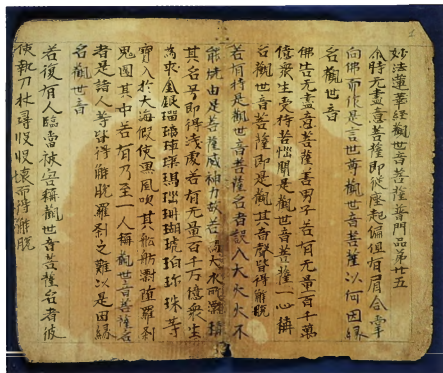 妙法蓮華經觀世音菩薩普門品第廿五
尒時无盡意菩薩即從座起偏袒右肩合掌
向佛而作是言世尊觀世音菩薩以何因緣
名觀世音
佛告无盡意菩薩善男子若有无量百千萬
億衆生受諸苦惱聞是觀世音菩薩一心稱
名觀世音菩薩即是觀其音聲皆得解脫
若有持是觀世音菩薩名者設入大火火不
能燒由是菩薩威神力故若為大水所漂稱
其名号即得淺處若有无量百千万億衆生
為求金銀瑠璃璖瑪瑙珊瑚琥珀珍珠等
寶入於大海假使黑風吹其船舫漂墮羅剎
鬼國其中若有乃至一人稱觀世音菩薩名
者是諸人等皆得解脫羅剎之難以是因緣
名觀世音
若復有人臨當被害稱觀世音菩薩名者彼
使執刀杖尋段段壞而得解脫